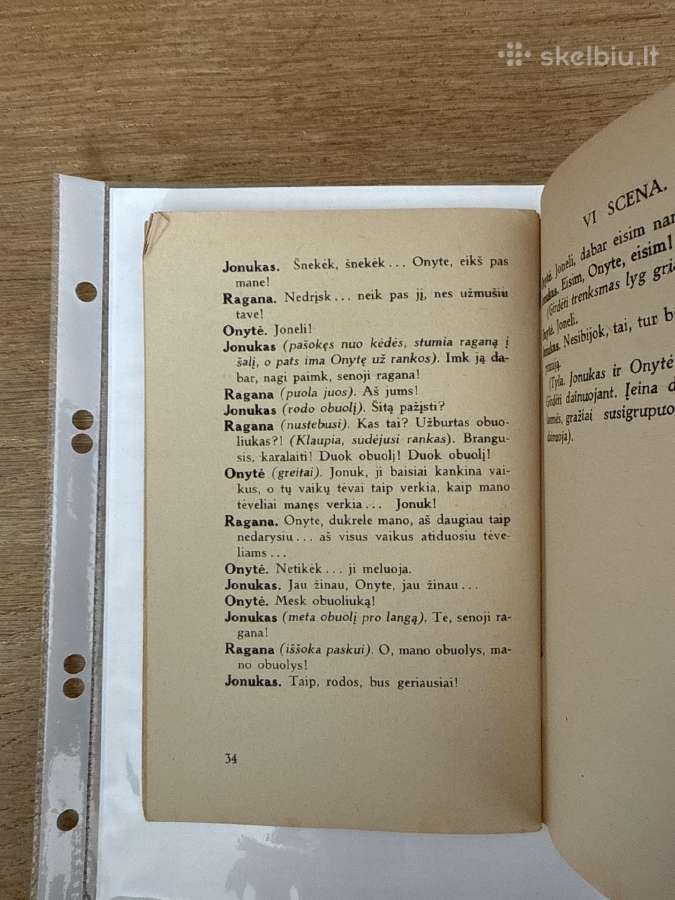 skelbiu.lt
Jonukas. Šnekėk, šnekėk... Onyte, eikš pas
mane!
Ragana. Nedrįsk... neik pas jį, nes užmušiu
tave!
Onytė. Joneli!
Jonukas (pašokęs nuo kėdės, stumia raganą į
šalį, o pats ima Onytę už rankos). Imk ją da-
bar, nagi paimk, senoji ragana!
Ragana (puola juos). Aš jums!
Jonukas (rodo obuolį). Šitą pažįsti?
Ragana (nustebusi). Kas tai? Užburtas obuo-
liukas?! (Klaupia, sudėjusi rankas). Brangu-
sis, karalaiti! Duok obuolį! Duok obuolį!
Onytė (greitai). Jonuk, ji baisiai kankina vai-
kus, o tų vaikų tėvai taip verkia, kaip mano
tėveliai manęs verkia... Jonuk!
Ragana. Onyte, dukrele mano, aš daugiau taip
nedarysiu... aš visus vaikus atiduosiu tėve-
liams...
Onytė. Netikėk... ji meluoja.
Jonukas. Jau žinau, Onyte, jau žinau...
Onytė. Mesk obuoliuką!
Jonukas (meta obuolį pro langą). Te, senoji ra-
gana!
Ragana (iššoka paskui). O, mano obuolys, ma-
no obuolys!
Jonukas. Taip, rodos, bus geriausiai!
34
VI SCENA.
Joneli, dabar eisim
Eisim, Onyte, eisim!
(Girdėti trenksmas lyg
Joneli.
Nesibijok, tai, tur
(Tyla. Jonukas ir Onytė
Girdėti dainuojant. Įeina
gražiai susigrupuo
dainuoja).